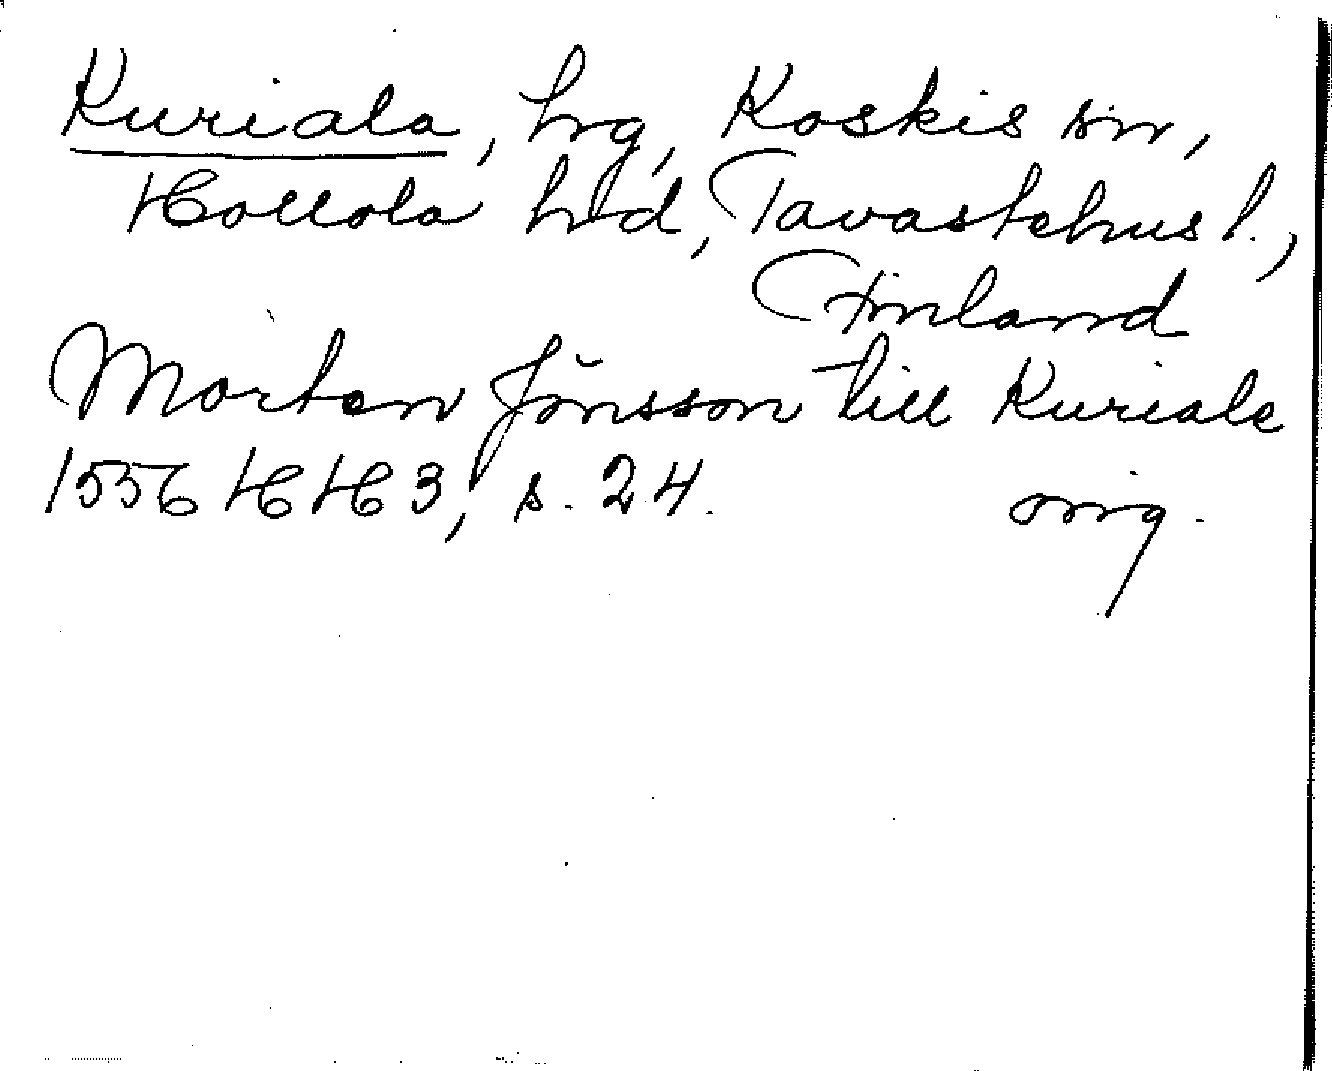 Kuriala, hrg, Koskis sn,
Hollola hrd, Tavastehus l.,
Finland
Morten Jönsson till Kuriala
1556 HH 3, s. 24. orig.